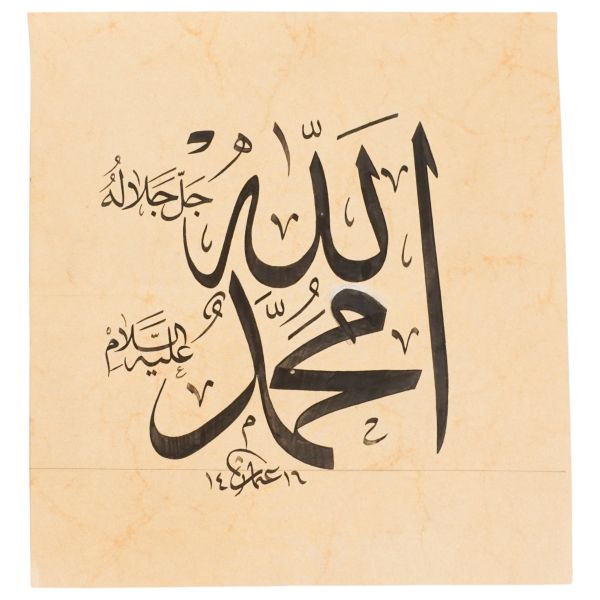 الله
جَلَّ جَلَالُهُ
مُحَمَّد
عليه السَّلَام
١٤١٦